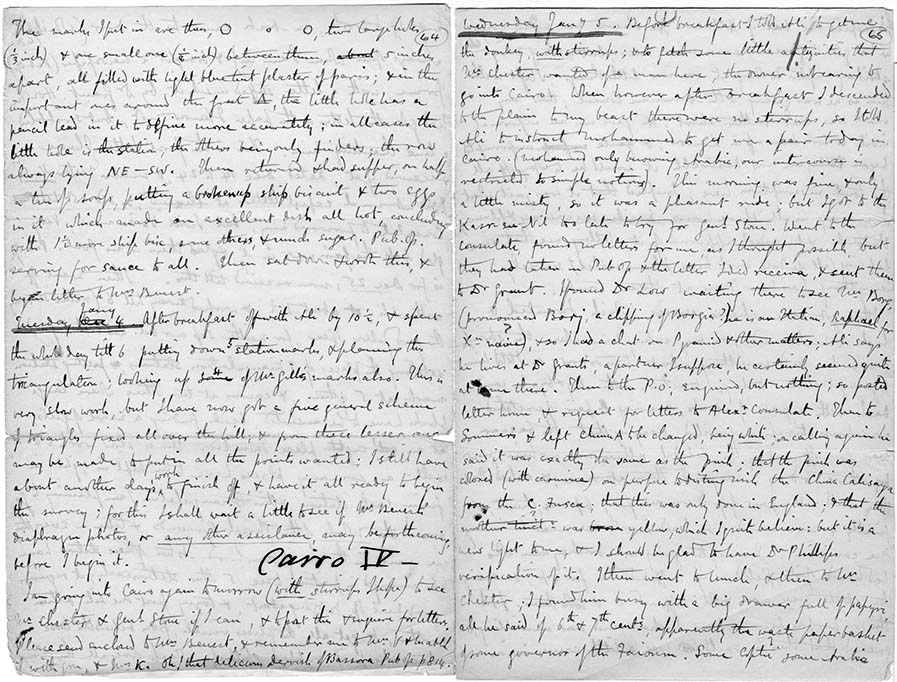 The marks I put in are thus, O o O, two large holes
64
(½ inch) & one small one (¼ inch) between them, about 5 inches
apart, all filled with light blue tint plaster of paris; & in the
important ones around the great Δ, the little hole has a
pencil lead in it to define more accurately; in all cases the
little hole is the station, the others being only finders; the row
always lying NE – SW. Then returned & had supper, on half
a tin of soup, putting a broken up ship biscuit & two eggs
in it which made an excellent dish all hot concluding
with more ship bisc, some & much sugar. Pub. Op.
serving for sauce to all. Then sat down & wrote this, &
letter to Mrs Benest.
Tuesday Jany 4 After breakfast off with Ali by 10½, & spent
the whole day till 6 putting down station marks, & planning the
triangulation; looking up some of Mr Gill's marks also. This is
very slow work, but I have now got a fine general scheme
of triangles fixed all over the hill; & from these lesser ones
may be made to put in all the points wanted; I still have
about another days work to finish off, & have it all ready to begin
the survey; for this I shall want a little to see if Mr Benest
diaphragm photos, or any other assistance, may be forthcoming,
before I begin it.
Cairo IV –
I am going into Cairo again tomorrow (with stirrups I hope) to see
Mr Chester & Genl Stone if I can, & to post this & enquire for letters.
Please send enclosed to Mrs Benest, & remember me to Mr
with you, & Swss K. Oh! that delicious dervish of Bassora Pub Op p 814.
Wednesday Jany 5. Before breakfast I told Ali to get me
65
the donkey with stirrups; & to fetch some little antiquities that
Mr Chester wanted of a man here, the owner not caring to
go into Cairo. When however after breakfast I descended
to the plain to my beast there were no stirrups, so I told
Ali to instruct Mohammed to get me a pair today in
Cairo. (Mohamed only knowing Arabic, our intercourse is
restricted to simple notions). This morning was fine, & only
a little misty, so it was a pleasant ride; but I got to the
Kasr-en-Nil too late to try for Genl Stone. Went to the
consulate, found no letters for me, as I thought possible, but
they had taken in Pub Op & the letter I did receive, & sent them
to Dr Grant. I found Dr Low waiting there to see Mr Borg
(pronounced Borj a clipping of Borgia? he is an Italian, Raphael for
Xn name), & so I had a chat on Pyramid & other matters; Ali says
he lives at Dr Grants, a partner I suppose, he certainly seemed quite
at home there. Then to the P.O. Enquired, but nothing; so posted
letter home & request for letters to Alexa Consulate. Then to
Sommers & left China A to be changed, being white; on calling again he
said it was exactly the same as the pink; that the pink was
colored (with carmine) on purpose to distinguish the China Calisaya
from the C. Fusca; that this was only done in England; & that the
was yellow, which I quite believe: but it is a
new light to me, & I should be glad to have Dr Phillips
verification of it. I then went to lunch & then to Mr
Chester; I found him busy with a big drawer full of papyri,
all he said of 6th & 7th cents, apparently the waste paper basket
of some governor of the Faioum. Some Coptic some Arabic